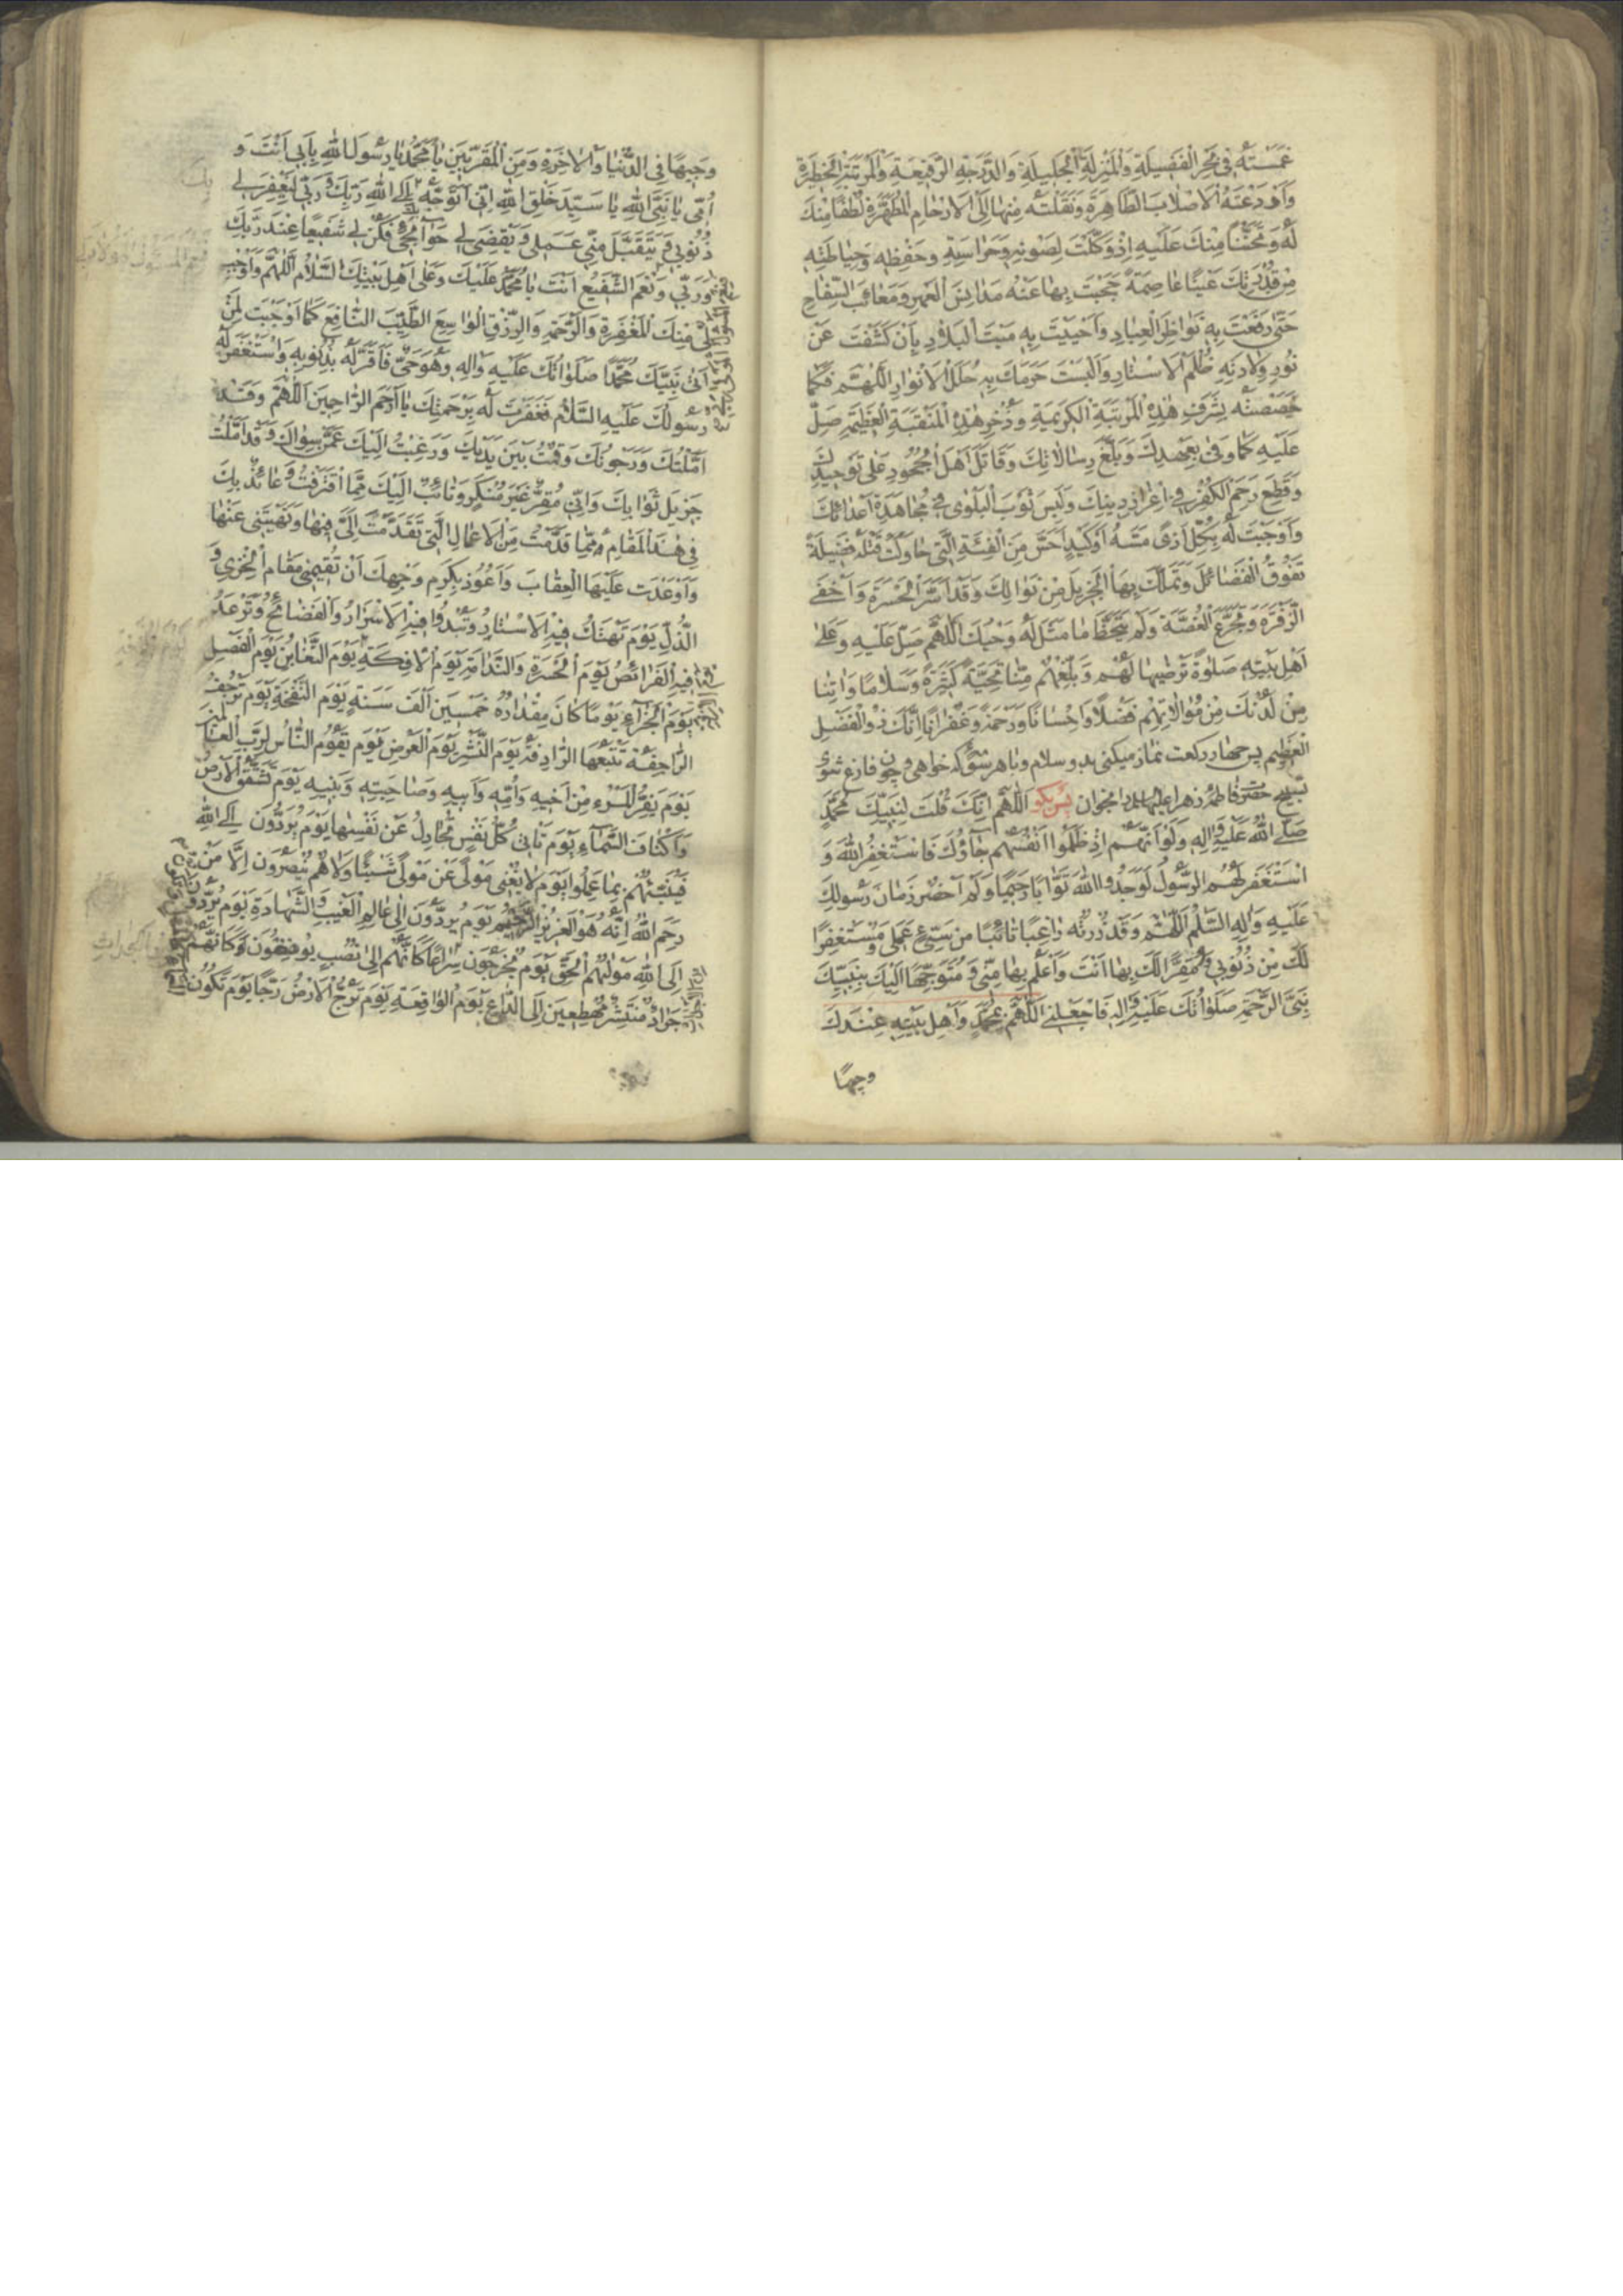 غَمَسْتَهُ فِي بَحْرِ الْفَضِيلَةِ وَالْمَنْزِلَةِ الْجَلِيلَةِ وَالدَّرَجَةِ الرَّفِيعَةِ وَالْمَرْتَبَةِ الْخَطِيرَةِ
وَأَوْدَعْتَهُ الْاَصْلَابَ الطَّاهِرَةَ وَنَقَلْتَهُ مِنْهَا اِلَى الْاَرْحَامِ الْمُطَهَّرَةِ لُطْفًا مِنْكَ
لَهُ وَتَحَنُّنًا مِنْكَ عَلَيْهِ اِذْ وَكَّلْتَ لِصَوْنِهِ وَحَرَاسَتِهِ وَحِفْظِهِ وَحِيَاطَتِهِ
مِنْ قُدْرَتِكَ عَيْنًا عَاصِمَةً حَجَبْتَ بِهَا عَنْهُ مَدَانِسَ الْعَهْرِ وَمَعَائِبَ السِّفَاحِ
حَتّٰى رَفَعْتَ بِهِ نَوَاظِرَ الْعِبَادِ وَاَحْيَيْتَ بِهِ مَيْتَ الْبِلَادِ بِاَنْ كَشَفْتَ عَنْ
نُورِ وِلَادَتِهِ ظُلَمَ الْاَسْتَارِ وَاَلْبَسْتَ حَرَمَكَ بِهِ حُلَلَ الْاَنْوَارِ اَللّٰهُمَّ فَكَمَا
خَصَصْتَهُ بِشَرَفِ هٰذِهِ الْمَرْتَبَةِ الْكَرِيمَةِ وَذُخْرِ هٰذِهِ الْمَنْقَبَةِ الْعَظِيمَةِ صَلِّ
عَلَيْهِ كَمَا وَفٰى بِعَهْدِكَ وَبَلَّغَ رِسَالَاتِكَ وَقَاتَلَ اَهْلَ الْجُحُودِ عَلٰى تَوْحِيدِكَ
وَقَطَعَ رَحِمَ الْكُفْرِ فِي اِعْزَازِ دِينِكَ وَلَبِسَ ثَوْبَ الْبَلْوٰى فِي مُجَاهَدَةِ اَعْدَائِكَ
وَاَوْجَبْتَ لَهُ بِكُلِّ اَذًى مَسَّهُ اَوْ كَيْدٍ اَحَسَّ مِنَ الْفِئَةِ الَّتِي حَاوَلَتْ قَتْلَهُ فَضِيلَةً
تَفُوقُ الْفَضَائِلَ وَتَمَلَّكَ بِهَا الْجَزِيلَ مِنْ نَوَالِكَ وَقَدْ اَسَرَّ الْحَسْرَةَ وَاَخْفٰى
الزَّفْرَةَ وَتَجَرَّعَ الْغُصَّةَ وَلَمْ يَتَخَطَّ مَا مَثَّلَ لَهُ وَحْيُكَ اَللّٰهُمَّ صَلِّ عَلَيْهِ وَعَلٰى
اَهْلِ بَيْتِهِ صَلٰوةً تَرْضِيهَا لَهُمْ وَبَلِّغْهُمْ مِنَّا تَحِيَّةً كَثِيرَةً وَسَلَامًا وَاٰتِنَا
مِنْ لَدُنْكَ مِنْ مُوَالَاتِهِمْ فَضْلًا وَاِحْسَانًا وَرَحْمَةً وَغُفْرَانًا اِنَّكَ ذُو الْفَضْلِ
الْعَظِيمِ پس چهار ركعت نماز ميكنى بدو سلام و با هر سورۀ كه خواهى و چون فارغ شوى
تسبيح حضرت فاطمۀ زهرا عليها السلام را بخوان پس بگو اَللّٰهُمَّ اِنَّكَ قُلْتَ لِنَبِيِّكَ مُحَمَّدٍ
صَلَّى اللّٰهُ عَلَيْهِ وَاٰلِهِ وَلَوْ اَنَّهُمْ اِذْ ظَلَمُوا اَنْفُسَهُمْ جَاؤُكَ فَاسْتَغْفَرُوا اللّٰهَ وَ
اسْتَغْفَرَ لَهُمُ الرَّسُولُ لَوَجَدُوا اللّٰهَ تَوَّابًا رَحِيمًا وَلَمْ اَحْضُرْ زَمَانَ رَسُولِكَ
عَلَيْهِ وَاٰلِهِ السَّلٰمُ اَللّٰهُمَّ وَقَدْ زُرْتُهُ رَاغِبًا تَائِبًا مِنْ سَيِّئِ عَمَلِي وَمُسْتَغْفِرًا
لَكَ مِنْ ذُنُوبِي وَمُقِرًّا لَكَ بِهَا اَنْتَ وَاَعْلَمُ بِهَا مِنِّي وَمُتَوَجِّهًا اِلَيْكَ بِنَبِيِّكَ
نَبِيِّ الرَّحْمَةِ صَلَوَاتُكَ عَلَيْهِ وَاٰلِهِ فَاجْعَلْنِي اَللّٰهُمَّ بِمُحَمَّدٍ وَاَهْلِ بَيْتِهِ عِنْدَكَ
وجيهًا
وَجِيهًا فِي الدُّنْيَا وَالْاٰخِرَةِ وَمِنَ الْمُقَرَّبِينَ يَا مُحَمَّدُ يَا رَسُولَ اللّٰهِ بِاَبِي اَنْتَ وَ
اُمِّي يَا نَبِيَّ اللّٰهِ يَا سَيِّدَ خَلْقِ اللّٰهِ اِنِّي اَتَوَجَّهُ بِكَ اِلَى اللّٰهِ رَبِّكَ وَرَبِّي لِيَغْفِرَ لِي
ذُنُوبِي وَيَتَقَبَّلَ مِنِّي عَمَلِي وَيَقْضِيَ لِي حَوَائِجِي فَكُنْ لِي شَفِيعًا عِنْدَ رَبِّكَ
وَرَبِّي وَنِعْمَ الشَّفِيعُ اَنْتَ يَا مُحَمَّدُ عَلَيْكَ وَعَلٰى اَهْلِ بَيْتِكَ السَّلَامُ اَللّٰهُمَّ وَاَوْجِبْ
لِي مِنْكَ الْمَغْفِرَةَ وَالرَّحْمَةَ وَالرِّزْقَ الْوَاسِعَ الطَّيِّبَ النَّافِعَ كَمَا اَوْجَبْتَ لِمَنْ
اَتٰى نَبِيَّكَ مُحَمَّدًا صَلَوَاتُكَ عَلَيْهِ وَاٰلِهِ وَهُوَ حَيٌّ فَاَقَرَّ لَهُ بِذُنُوبِهِ وَاسْتَغْفَرَ لَهُ
رَسُولُكَ عَلَيْهِ السَّلَامُ فَغَفَرْتَ لَهُ بِرَحْمَتِكَ يَا اَرْحَمَ الرَّاحِمِينَ اَللّٰهُمَّ وَقَدْ
اَمَّلْتُكَ وَرَجَوْتُكَ وَقُمْتُ بَيْنَ يَدَيْكَ وَرَغِبْتُ اِلَيْكَ عَمَّنْ سِوَاكَ وَقَدْ اَمَّلْتُ
جَزِيلَ ثَوَابِكَ وَاِنِّي مُقِرٌّ غَيْرُ مُنْكِرٍ وَتَائِبٌ اِلَيْكَ مِمَّا اقْتَرَفْتُ وَعَائِذٌ بِكَ
فِي هٰذَا الْمَقَامِ مِمَّا قَدَّمْتُ مِنَ الْاَعْمَالِ الَّتِي تَقَدَّمْتَ اِلَيَّ فِيهَا وَنَهَيْتَنِي عَنْهَا
وَاَوْعَدْتَ عَلَيْهَا الْعِقَابَ وَاَعُوذُ بِكَرَمِ وَجْهِكَ اَنْ تُقِيمَنِي مَقَامَ الْخِزْيِ وَ
الذُّلِّ يَوْمَ تُهْتَكُ فِيهِ الْاَسْتَارُ وَتَبْدُوا فِيهِ الْاَسْرَارُ وَالْفَضَائِحُ وَتَرْعَدُ
فِيهِ الْفَرَائِصُ يَوْمَ الْحَسْرَةِ وَالنَّدَامَةِ يَوْمَ الْاٰفِكَةِ يَوْمَ التَّغَابُنِ يَوْمَ الْفَصْلِ
يَوْمَ الْجَزَاءِ يَوْمًا كَانَ مِقْدَارُهُ خَمْسِينَ اَلْفَ سَنَةٍ يَوْمَ النَّفْخَةِ يَوْمَ تَرْجُفُ
الرَّاجِفَةُ تَتْبَعُهَا الرَّادِفَةُ يَوْمَ النَّشْرِ يَوْمَ الْعَرْضِ يَوْمَ يَقُومُ النَّاسُ لِرَبِّ الْعَالَمِينَ
يَوْمَ يَفِرُّ الْمَرْءُ مِنْ اَخِيهِ وَاُمِّهِ وَاَبِيهِ وَصَاحِبَتِهِ وَبَنِيهِ يَوْمَ تَشَقَّقُ الْاَرْضُ
وَاَكْنَافُ السَّمَاءِ يَوْمَ تَاْتِي كُلُّ نَفْسٍ تُجَادِلُ عَنْ نَفْسِهَا يَوْمَ يُرَدُّونَ اِلَى اللّٰهِ
فَيُنَبِّئُهُمْ بِمَا عَمِلُوا يَوْمَ لَا يُغْنِي مَوْلًى عَنْ مَوْلًى شَيْئًا وَلَا هُمْ يُنْصَرُونَ اِلَّا مَنْ
رَحِمَ اللّٰهُ اِنَّهُ هُوَ الْعَزِيزُ الرَّحِيمُ يَوْمَ يُرَدُّونَ اِلٰى عَالِمِ الْغَيْبِ وَالشَّهَادَةِ يَوْمَ يُرَدُّونَ
اِلَى اللّٰهِ مَوْلٰيهُمُ الْحَقِّ يَوْمَ يَخْرُجُونَ سِرَاعًا كَاَنَّهُمْ اِلٰى نُصُبٍ يُوفِضُونَ وَكَاَنَّهُمْ
جَرَادٌ مُنْتَشِرٌ مُهْطِعِينَ اِلَى الدَّاعِ يَوْمَ الْوَاقِعَةِ يَوْمَ تُرَجُّ الْاَرْضُ رَجًّا يَوْمَ تَكُونُ